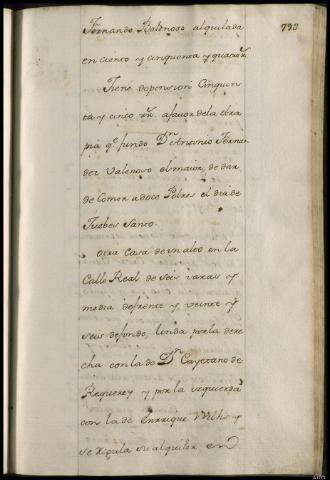 733
Fernando Balenoso alquilada
en ciento y cinquenta y quatro rr
Tiene de pension Cinquen
ta y cinco rr. a favor de la obra
pia q.e fundo Dn Antonio Fernan
dez Valenoso el maior, de dar
de Comer a doce Pobres el dia de
Juebes Santo.
Otra Casa de un alto en la
Calle Real de seis varas y
media de frente y veinte y
seis de fondo, linda por la dere
cha con la de Dn Cayetano de
Requerey y por la izquierda
con la de Enrrique y
se regula su alquiler en